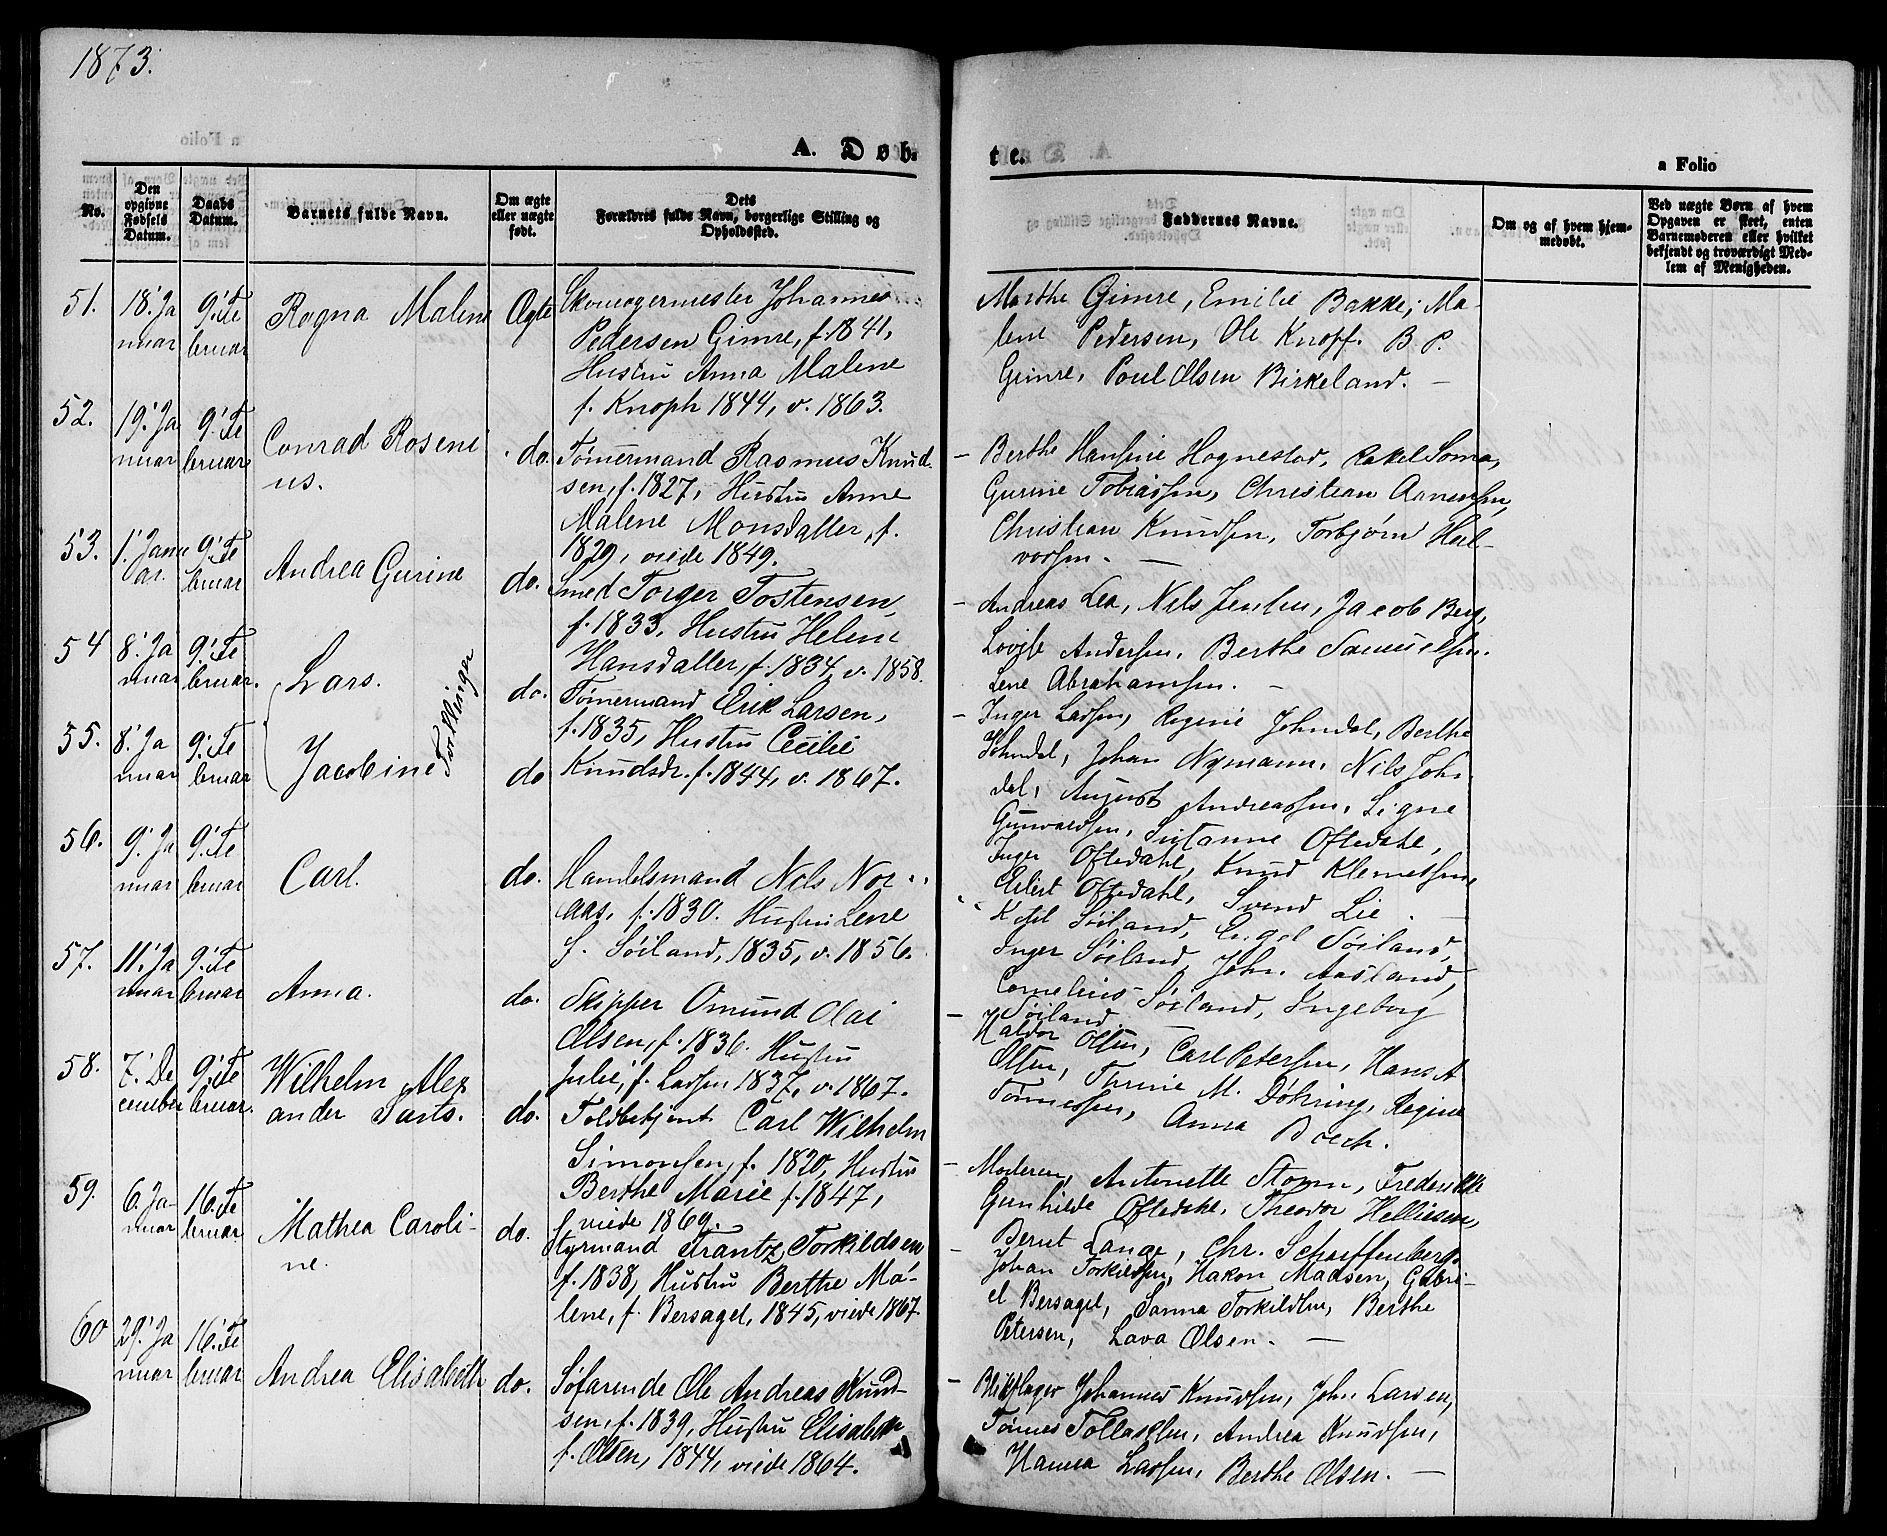 1873.
A. Døb-
te.
a Folio
No.
Den opgivne Fødsels Datum.
Daabs Datum.
Barnets fulde Navn.
Om ægte eller uægte født.
Dets Forældres fulde Navn, borgerlige Stilling og Opholdssted.
Faddernes Navne.
Om og af hvem hjemmedøbt.
Ved uægte Børn af hvem Opgaven er skeet, enten Barnemoderen eller hvilket bekjendt og troværdigt Medlem af Menigheden.
51.
18. Ja
nuar
9. Fe
bruar
Ragna Malene
Ægte
Skomagermester Johannes
Pedersen Gimre, f. 1841,
Hustru Anna Malene
f. Knoph 1844, v. 1863.
Marthe Gimre, Emilie Bakke, Ma-
lene Pedersen, Ole Knoff. B. P.
Gimre, Poul Olsen Birkeland. —
52.
19. Ja
nuar
9. Fe
bruar
Conrad Roseni
us.
do.
Tømermand Rasmus Knud
sen, f. 1827, Hustru Anne
Malene Monsdatter, f.
1829, viede 1849.
Berthe Hansine Hognestad, Rakel Soma,
Gurine Tobiassen, Christian Aanensen,
Christian Knudsen, Torbjørn Hal-
vorsen. —
53.
1. Janu
ar.
9. Fe
bruar
Andrea Gurine
do.
Smed Torger Tostensen,
f. 1833, Hustru Helene
Hansdatter, f. 1834, v. 1858.
Andreas Lea, Nils Jensen, Jacob Berg,
Lovise Andersen, Berthe Samuelsen.
Lene Abrahamsen. —
54
8. Ja
nuar
9. Fe
bruar.
Lars.
Tvillinger
do.
Tømermand Erik Larsen,
f. 1835, Hustru Cecilie
Knudsdr. f. 1844, v. 1867.
Inger Larsen, Regine Johndal, Berthe
Johndal, Johan Nymann, Nils John
dal, August Andreassen, Signe
Gunvaldsen, Susanne Oftedahl,
Inger Oftedahl, Knud Klemetsen
Eilert Oftedahl, Svend Lie. —
55.
8. Ja
nuar
9. Fe
bruar
Jacobine
do
56.
9. Ja
nuar
9. Fe
bruar
Carl.
do.
Handelsmand Nils Nor
aas, f. 1830. Hustru Lene
f. Søiland, 1835, v. 1856.
Ketil Søiland, Engel Søiland,
Inger Søiland, John Aasland,
Cornelius Søiland, Ingeborg
Søiland. —
57.
11. Ja
nuar
9. Fe
bruar
Anna.
do.
Skipper Omund Olai
Olsen, f. 1836. Hustru
Julie, f. Larsen 1837, v. 1867.
Haldor Olsen, Carl Petersen, Hans A
Olsen, Thrine M. Døhring, Regine
Tønnessen, Anna Boech.
58.
7. De
cember
9. Fe
bruar.
Wilhelm Alex
ander Parts.
do.
Toldbetjent Carl Wilhelm
Simonsen, f. 1820, Hustru
Berthe Marie f. 1847,
viede 1869.
Moderen, Antonette Storm, Frederikke
Gunhilde Oftedahl, Theodor Helliesen,
Bernt Lange, Chr. Scharffenberg.
59.
6. Ja-
nuar
16. Fe
bruar
Mathea Caroli-
ne.
do.
Styrmand Frantz Torkildsen
f. 1838, Hustru Berthe Ma-
lene, f. Bersagel, 1845, viede 1867
Johan Torkildsen, Hakon Madsen, Gabri-
el Bersagel, Sanna Torkildsen, Berthe
Petersen, Lava Olsen. —
60
29. Ja
nuar
16. Fe
bruar
Andrea Elisabeth
do.
Søfarende Ole Andreas Knud-
sen, f. 1839, Hustru Elisabeth
f. Olsen, 1844, viede 1864.
Blikslager Johannes Knudsen, John Larsen,
Tønnes Tollaksen, Andrea Knudsen,
Hanna Larsen, Berthe Olsen. —